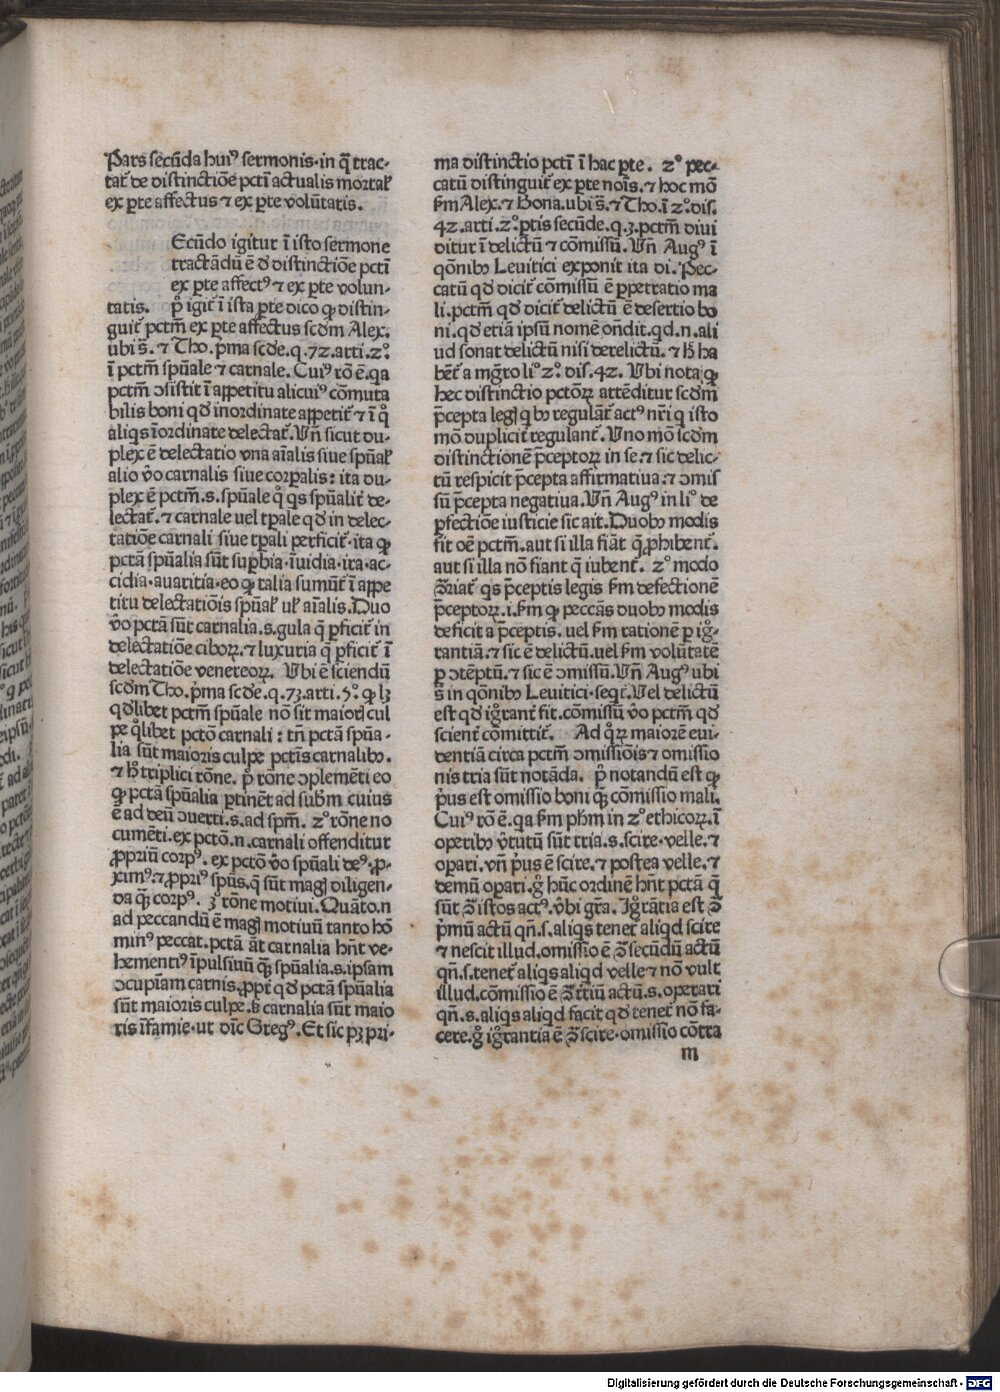 Pars secūda huiꝰ sermonis·in q̄ trac-
tat̄ de distinctiōe pctī actualis mortal̄
ex ꝑte affectus ⁊ ex ꝑte volūtatis.
Ecūdo igitur ī isto sermone
tractādū ē ď distinctiōe pctī
ex ꝑte affectꝰ ⁊ ex ꝑte volun-
tatis. pͦ igit̄ ī ista ꝑte dico ꝙ distin-
guit̄ pctm̄ ex ꝑte affectus scďm Alex.
ubi s̄. ⁊ Tho. p̄ma scďe.q.72.arti.2º.
ī pctm̄ spūale ⁊ carnale. Cuiꝰ rō ē.qa
pctm̄ ↄsistit ī appetitu alicuiꝰ cōmuta
bilis boni qď inordinate appetit̄ ⁊ ī qͦ
aliqs īordinate delectat̄.Vn̄ sicut du-
plex ē delectatio vna aīalis siue spūal̄
alio v̄o carnalis siue corꝑalis: ita du-
plex ē pctm̄.s.spūale qͦ qs spūalit̄ de-
lectat̄.⁊ carnale uel tꝑale qď in delec-
tatiōe carnali siue tꝑali perficit̄·ita ꝙ
pctā spūalia sūt suꝑbia·īuidia·ira·ac-
cidia·auaritia·eo ꝙ talia sumūt̄ ī appe
titu delectatiōis spūal̄ ul̄ aīalis.Duo
v̄o pctā sūt carnalia.s.gula q̄ ꝑficit̄ in
delectatiōe ciboꝝ.⁊ luxuria q̄ ꝑficit̄ ī
delectatiōe venereoꝝ. Vbi ē sciendū
scďm Tho.p̄ma scďe.q.73.arti.5º.ꝙ lꝫ
qďlibet pctm̄ spūale nō sit maioris cul
pe qͦlibet pctō carnali : tn̄ pctā spūa-
lia sūt maioris culpe pctīs carnalibꝰ.
⁊ hͦ triplici rōne. pͦ rōne ↄplemēti eo
ꝙ pctā spūalia ꝑtinēt ad subm̄ cuius
ē ad deū ↄuerti.s.ad spm̄. 2º rōne no
cumēti.ex pctō.n.carnali offenditur
ꝓpriū corpꝰ. ex pctō v̄o spūali deꝰ.ꝓ-
ximꝰ.⁊ ꝓpriꝰ spūs.q̄ sūt magꝭ diligen-
da qꝫ corpꝰ. 3º rōne motiui. Quāto.n
ad peccandū ē magꝭ motiuū tanto hō
minꝰ peccat.pctā āt carnalia hn̄t ve-
hementiꝰ īpulsiuū qꝫ spūalia.s.ipsam
ↄcupīam carnis.ꝓpt̄ qď pctā spūalia
sūt maioris culpe.ꝫ carnalia sūt maio
ris īfamie·ut dīc Gregꝰ.Et sic pꝫ pri-
ma distinctio pctī ī hac ꝑte. 2º pec-
catū distinguit̄ ex ꝑte noīs.⁊ hoc mō
ẜm Alex.⁊ Bona.ubi s̄.⁊ Tho.ī 2º.dis.
42.arti.2º.ꝑtis secūde.q.3.pctm̄ diui
ditur ī delictū ⁊ cōmissū. Vn̄ Augꝰ ī
qōnibꝰ Leuitici exponit ita di. Pec-
catū qď dicit̄ cōmissū ē ꝑpetratio ma
li.pctm̄ qď dicit̄ delictū ē desertio bo
ni.qď etiā ipsū nomē on̄dit.qd.n.ali
ud sonat delictū nisi derelictū.⁊ hͦ ha
bet̄ a mgr̄o liº 2º dis.42. Vbi nota ꝙ
hec distinctio pctōꝝ attēditur scďm
p̄cepta legꝭ qͥbꝰ regulāt̄ actꝰ nr̄i q isto
mō duplicit̄ regulant̄.Vno mō scďm
distinctionē p̄ceptoꝝ in se.⁊ sic delic-
tū respicit p̄cepta affirmatiua.⁊ ↄmis
sū p̄cepta negatiua.Vn̄ Augꝰ in liº de
ꝑfectiōe iusticie sic ait.Duobꝰ modis
fit oē pctm̄.aut si illa fiāt q̄ ꝓhibent̄.
aut si illa nō fiant q̄ iubent̄. 2º modo
ↄ̄riat̄ qs p̄ceptis legis ẜm defectionē
p̄ceptoꝝ.i.ẜm ꝙ peccās duobꝰ modis
deficit a p̄ceptis.uel ẜm rationē ꝑ igͦ-
rantiā.⁊ sic ē delictū.uel ẜm volūtatē
ꝑ ↄtēptū.⁊ sic ē ↄmissū.Vn̄ Augꝰ ubi
s̄ in qōnibꝰ Leuitici·seqt̄.Vel delictū
est qď igͦrant̄ fit.cōmissū v̄o pctm̄ qď
scient̄ cōmittit̄. Ad qͦꝝ maiorē eui-
dentiā circa pctm̄ ↄmissiōis ⁊ omissio
nis tria sūt notāda. pͦ notandū est ꝙ
p̄us est omissio boni qꝫ cōmissio mali.
Cuiꝰ rō ē.qa ẜm ph̄m in 2º ethicoꝝ.ī
operibꝰ v̄tutū sūt tria.s.scire·velle.⁊
oꝑari.vn̄ p̄us ē scire.⁊ postea velle.⁊
demū oꝑari.gͦ hūc ordinē hn̄t pctā q̄
sūt ↄ̄ istos actꝰ.v̄bi gr̄a. Igͦrātia est ↄ̄
p̄mū actū qn̄.s.aliqs tenet̄ aliqd scire
⁊ nescit illud.omissio ē ↄ̄ secūdū actū
qn̄.s.tenet̄ aliqs aliqd velle ⁊ nō vult
illud.cōmissio ē ↄ̄ t̄tiū actū.s.operari
qn̄.s.aliqs aliqd facit qď tenet̄ nō fa-
cere.gͦ igͦrantia ē ↄ̄ scire·omissio cōtra
m
Digitalisierung gefördert durch die Deutsche Forschungsgemeinschaft - DFG